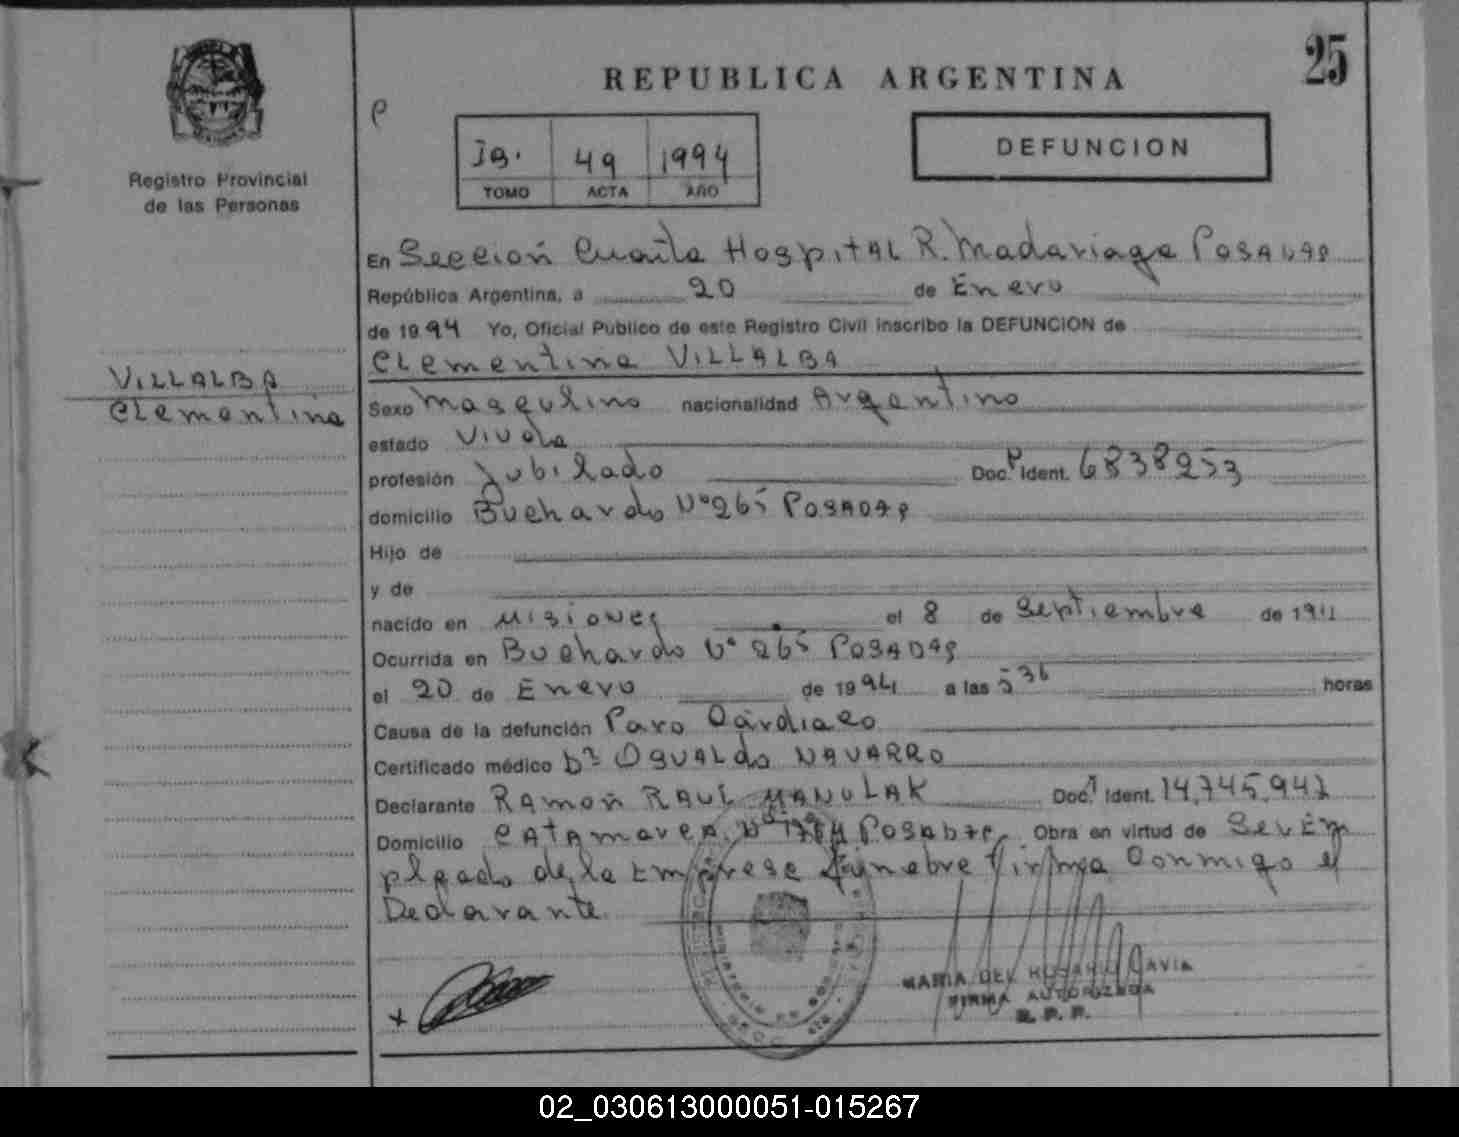 25
REPUBLICA ARGENTINA
DEFUNCION
49 1994
TOMO ACTA AÑO
Registro Provincial
de las Personas
VILLALBA
Clementina
En Sección Cuarta Hospital R. Madariaga Posadas
República Argentina, a 20 de Enero
de 1994 Yo, Oficial Público de este Registro Civil inscribo la DEFUNCION de
Clementina VILLALBA
Sexo Masculino nacionalidad Argentino
estado Viuda
profesión Jubilado Doc. Ident. 6838253
domicilio Buchardo Nº 265 Posadas
Hijo de
y de
nacido en Misiones el 8 de Septiembre de 1911
Ocurrida en Buchardo Nº 265 Posadas
el 20 de Enero de 1994 a las 5 36 horas
Causa de la defunción Paro Cardiaco
Certificado médico Dr Osvaldo NAVARRO
Declarante Ramon RAUL MANULAK Doc. Ident. 14,745,947
Domicilio Catamarca Nº Posadas Obra en virtud de Ser Em
pleado de la Emprese Funebre Firma Conmigo el
Declarante
MARIA DEL ROSARIO GAVIA
FIRMA AUTORIZADA
R. P. P.
02_030613000051-015267